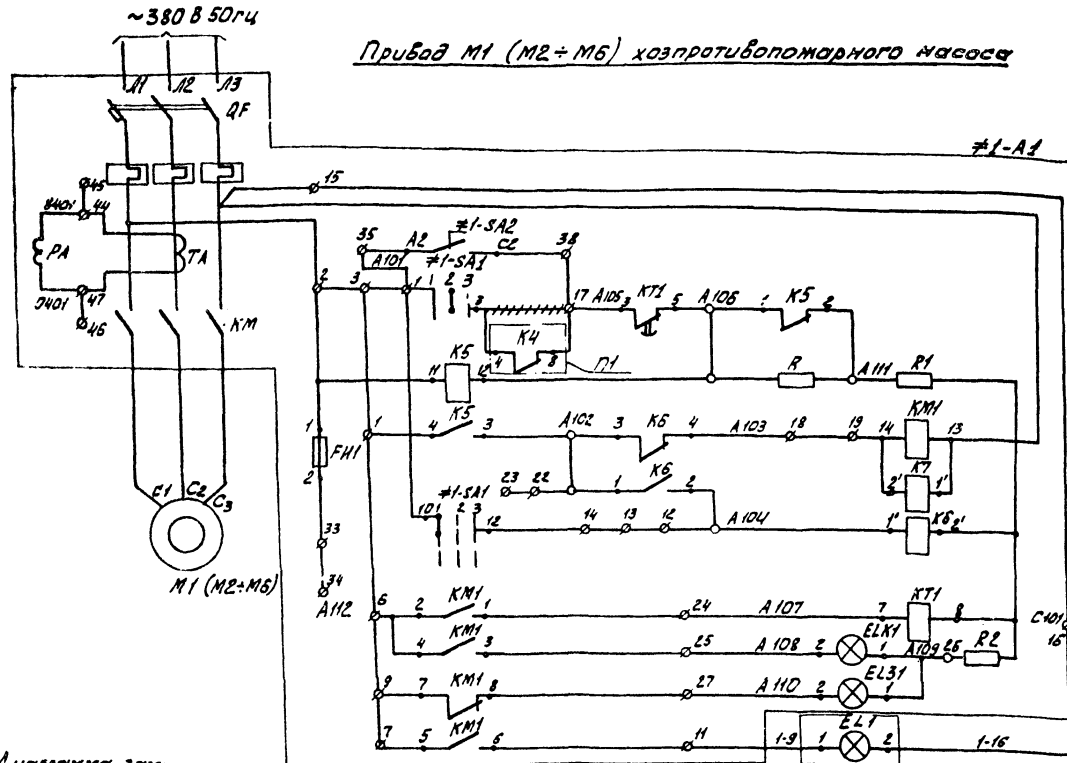 ~380 В 50гц
Привод М1 (М2÷М6) хозпротивопожарного насоса
Л1 Л2 Л3
QF
≠1-А1
45 15
У401 44
35 А2 ≠1-SA2 С2 38
РА ТА
А101 ≠1-SA1
2 3 1 2 3 3 17 А105 3 КТ1 5 А106 1 К5 2
Э401 47
46 КМ
К4
4 8 П1
11 К5 12 R А111 R1
КМ1
1 1 4 К5 3 А102 3 К6 4 А103 18 19 14 13
FH1
2
К7
2' 1'
23 22 1 К6 2
≠1-SA1
10 1 2 3 12 14 13 12 А104 1" К6 2'
Е1 С2 С3
33
34
А112
М1 (М2÷М6)
КТ1
6 2 КМ1 1 24 А107 7 8
С101
16
4 КМ1 3 25 А108 2 ELK1 1 А109 26 R2
9 7 КМ1 8 27 А110 2 EL31 1
7 5 КМ1 6 11 1-9 1 EL1 2 1-16